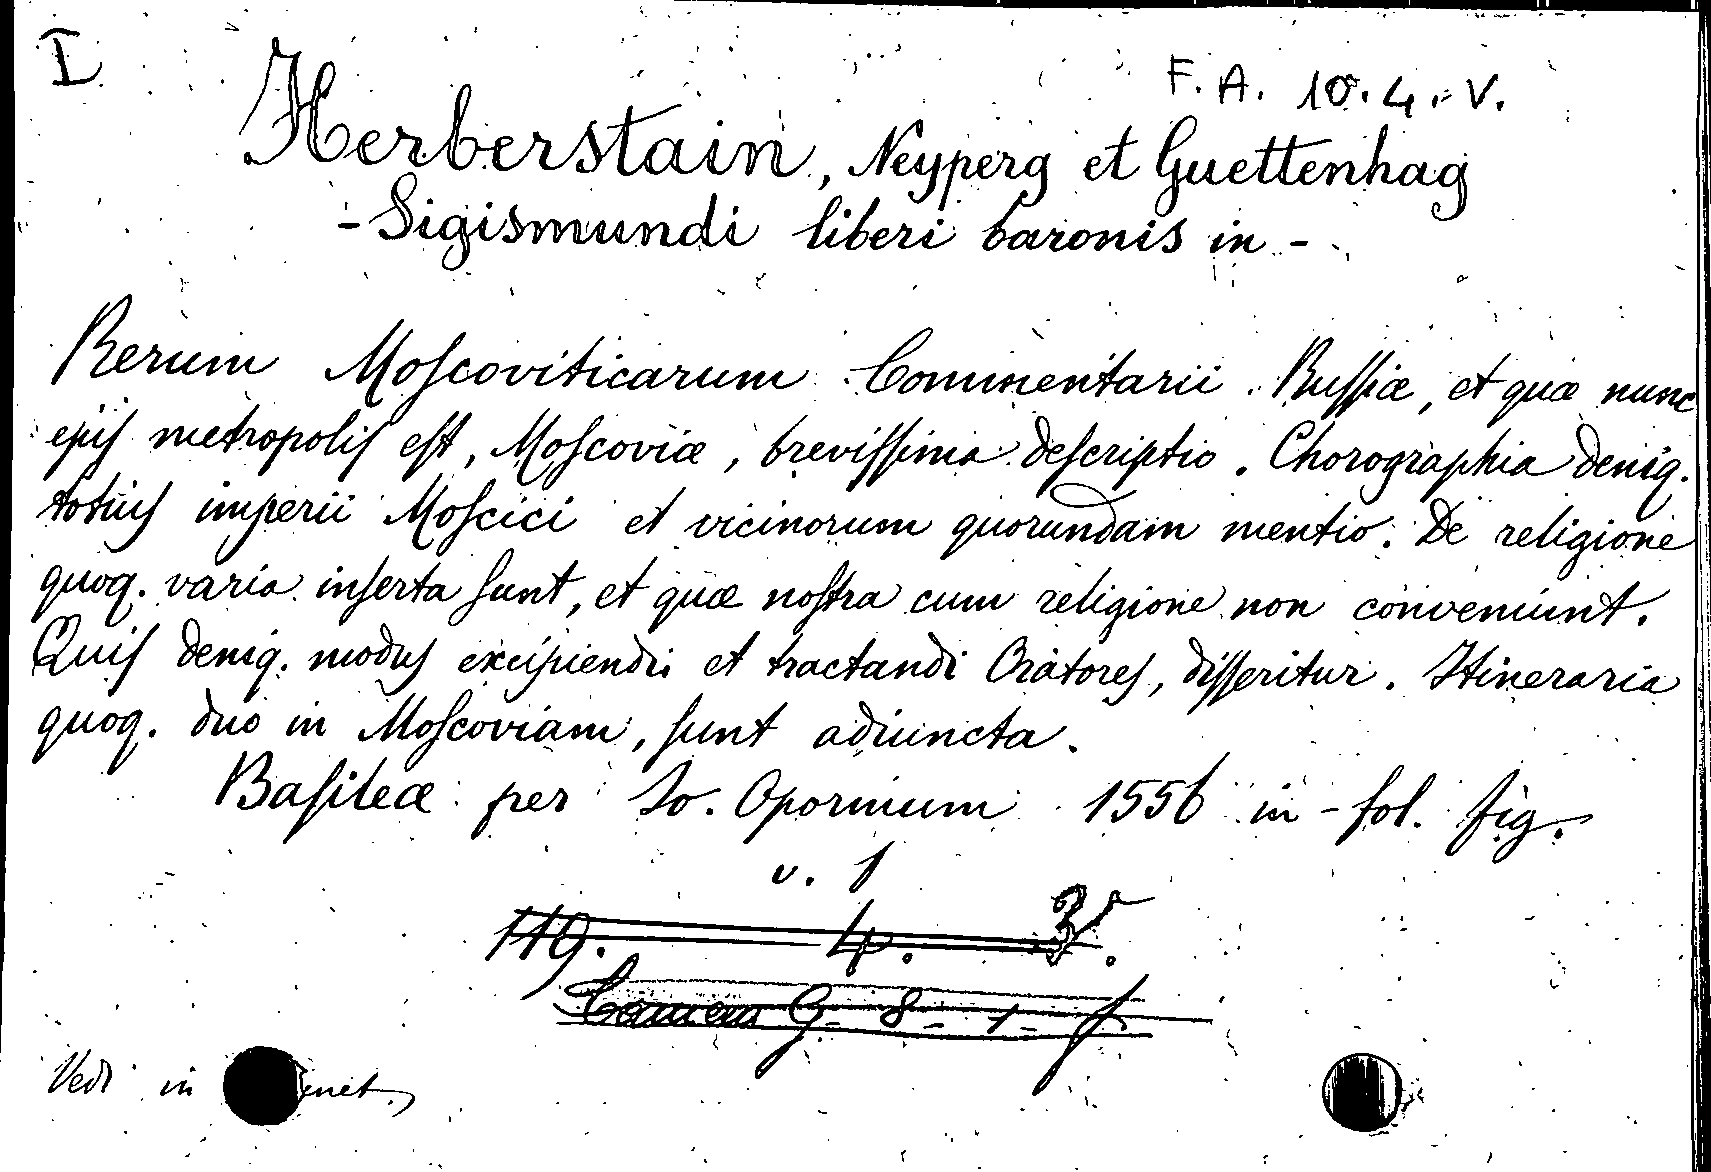 I
F. A. 10. 4. V.
Herberstain, Neyperg et Guettenhag
- Sigismundi liberi baronis in -
Rerum Moſcoviticarum Commentarii. Ruſſiæ, et quæ nunc
ejuſ metropoliſ eſt, Moſcoviæ, breviſſima deſcriptio. Chorographia deniq.
totiuſ imperii Moſcici et vicinorum quorundam mentio. De religione
quoq. varia inſerta ſunt, et quæ noſtra cum religione non conveniunt.
Quiſ deniq. moduſ excipiendi et tractandi Oratoreſ, diſſeritur. Itineraria
quoq. duo in Moſcoviam, ſunt adiuncta.
Baſileæ per Jo. Oporinum 1556 in-fol. fig.
v. 1
119. 4.
G. 8 - 1 - f
Vedi in